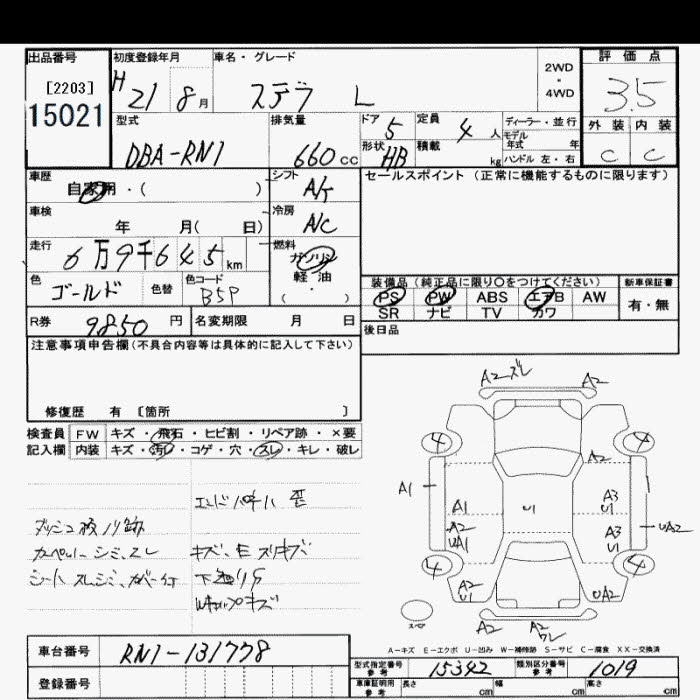 出品番号
[2203]
15021
初度登録年月
H 21 8月
車名・グレード
ステラ L
2WD
・
4WD
評価点
3.5
外装 内装
C C
型式
DBA-RN1
排気量
660cc
ドア
5
定員
4人
形状
HB
積載
kg
ディーラー・並行
モデル
年式 年
ハンドル 左・右
車歴
自家用・( )
シフト
A/T
セールスポイント (正常に機能するものに限ります)
車検
年 月( 日)
冷房
A/C
走行
6万9千645km
燃料
ガソリン
軽・油
( ・ )
色
ゴールド
色替
色コード
B5P
装備品 (純正品に限り○をつけてください)
PS PW ABS エアB AW
SR ナビ TV カワ
新車保証書
有・無
R券
9850円
名変期限 月 日
後日品
注意事項申告欄(不具合内容等は具体的に記入して下さい)
修復歴 有 〔箇所 〕
検査員
記入欄
FW キズ・飛石・ヒビ割・リペア跡・×要
内装 キズ・汚レ・コゲ・穴・スレ・キレ・破レ
エンドパネル 歪
カーペット シミ、スレ
キズ、E スリキズ
下廻りS
A2 ズレ
A2
4
4
A2
A1
A1
U1
A3
U1
A2
UA1
A3
U1
UA2
4
4
A2
U1
UA2
スペア
A2
A2
ワレ
A-キズ E-エクボ U-凹み W-補修跡 S-サビ C-腐食 XX-交換済
車台番号
RN1-131778
登録番号
型式指定番号
参考
15342
類別区分番号
参考
1019
車庫証明用
参考
長さ cm
幅 cm
高さ cm